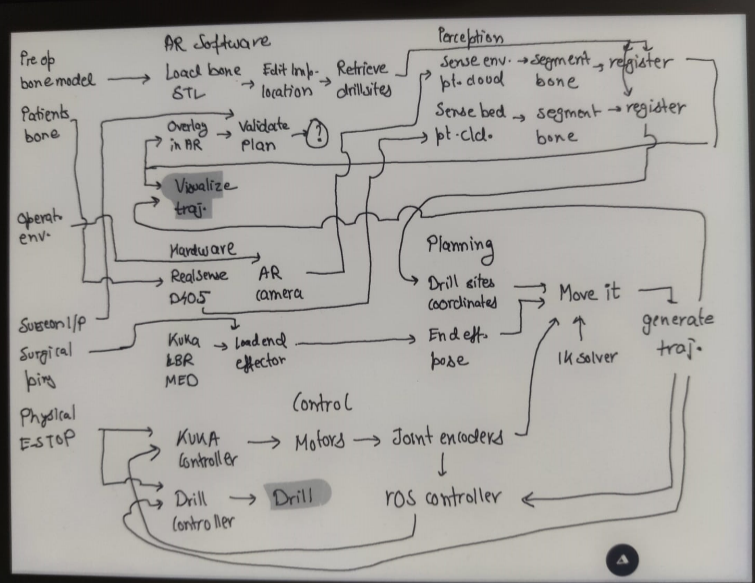 AR Software
Perception
Pre op
bone model
Load bone
STL
Edit Imp.
location
Retrieve
drillsites
Sense env.
pt. cloud
segment
bone
register
Patients
bone
Sense bed
pt. cld.
segment
bone
register
Overlay
in AR
Validate
Plan
?
Visualize
traj.
Operat.
env.
Hardware
Realsense
D405
AR
camera
Planning
Drill sites
coordinates
Move it
generate
traj.
Surgeon I/P
Surgical
Kuka
LBR
MED
Load end
effector
End eff.
pose
IK solver
Control
Physical
E-STOP
KUKA
Controller
Motors
Joint encoders
Drill
Controller
Drill
ROS controller